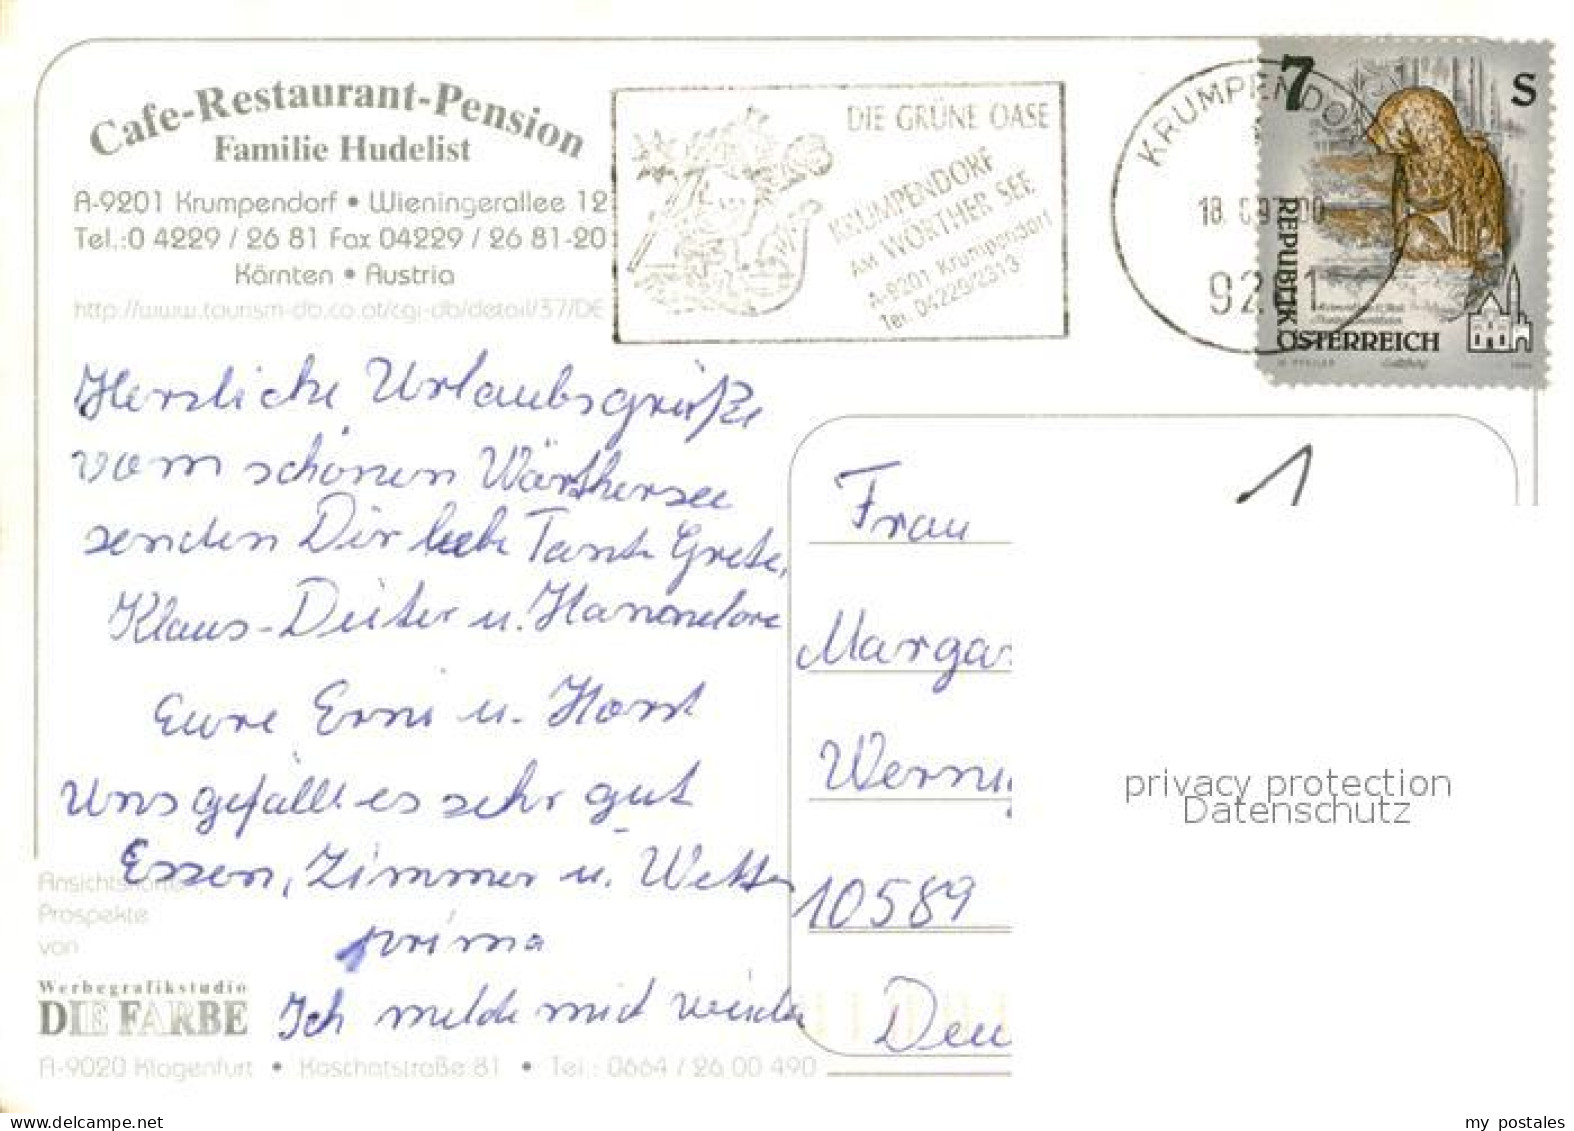 Cafe-Restaurant-Pension
Familie Hudelist
A-9201 Krumpendorf • Wieningerallee 12
Tel.:0 4229 / 26 81 Fax 04229 / 26 81-20
Kärnten • Austria
http://www.tourism-db.co.at/cgi-db/detail/37/DE
DIE GRÜNE OASE
KRUMPENDORF
AM WÖRTHER SEE
A-9201 Krumpendorf
Tel. 04229/2313
KRUMPENDO
18. 09
92 1
7 S
REPUBLIK
ÖSTERREICH
Herzliche Urlaubsgrüße
vom schönen Wörthersee
senden Dir liebe Tante Grete,
Klaus-Dieter u. Hannelore
Eure Erni u. Horst
Uns gefällt es sehr gut
Essen, Zimmer u. Wetter
prima
Ich melde mich wieder
1
Frau
Margar
Wernig
10589
Deu
privacy protection
Datenschutz
Ansichtskarten,
Prospekte
von
Werbegrafikstudio
DIE FARBE
A-9020 Klagenfurt • Koschatstraße 81 • Tel.: 0664 / 26 00 490
my postales